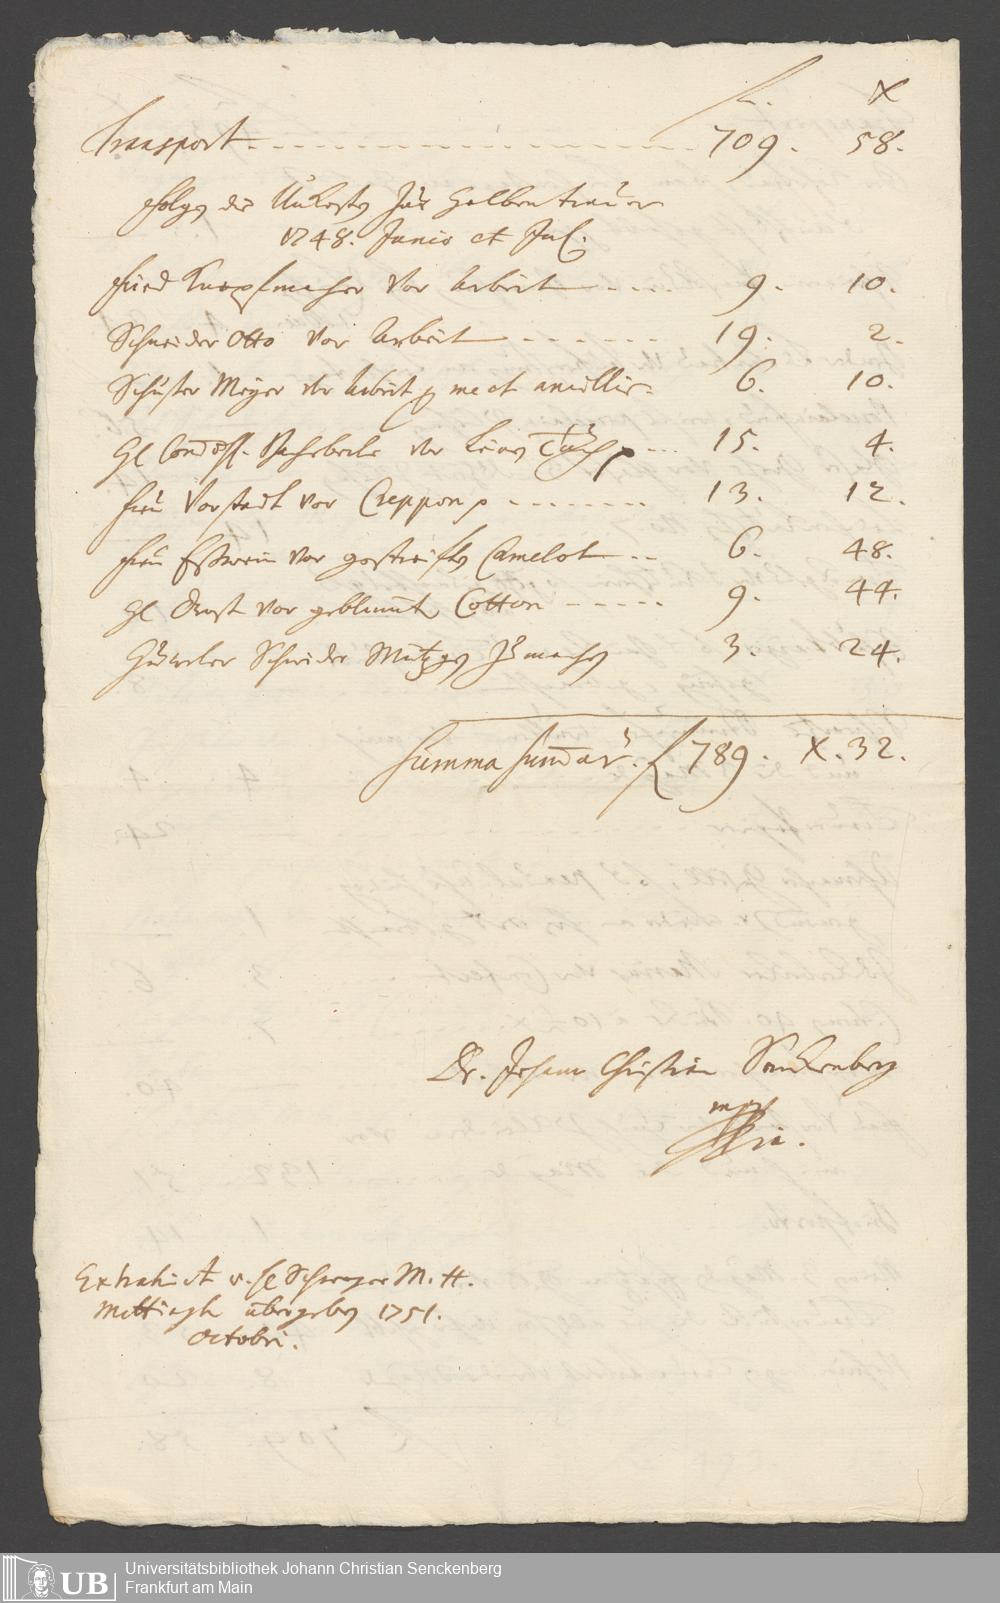 fl. x
Transport 709. 58.
folgen die Unkosten zur Halben trauer
1748. Junio et Jul.
Knopfmacher vor Arbeit 9. 10.
Schneider Otto vor Arbeit 19. 2.
Schuster Meyer vor Arbeit p me et ancillis 6. 10.
15. 4.
Frau Vorstadt vor Creppon p 13. 12.
Frau vor gestreiften Camelot 6. 48.
vor geblümt Cotton 9. 44.
Schneider Mützgen zu machen 3. 24.
Summa Summar. fl 789. x. 32.
Dr. Johann Christian Senckenberg
mpp
Schwager M. H.
Mettingh übergeben 1751.
Octobri.
Universitätsbibliothek Johann Christian Senckenberg
UB Frankfurt am Main